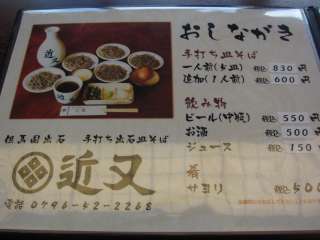 おしながき
手打ち皿そば
一人前(五皿) 税込 830円
追加(1人前) 税込 600円
飲み物
ビール(中瓶) 税込 550円
お酒 税込 500円
ジュース 税込 150
サヨリ 税込 500
但馬国出石 手打ち出石皿そば
近又
電話 0796-52-2268